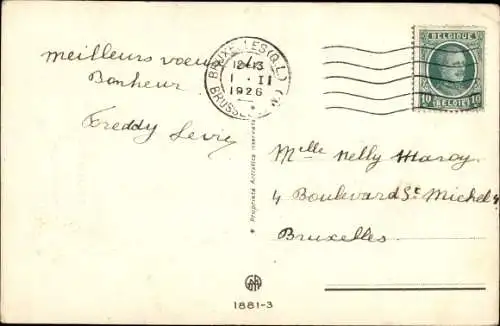 meilleurs voeux de
Bonheur
Freddy Levy
BRUXELLES (Q.L.)
12-13
1 · II
1926
BRUSSEL
BELGIQUE
10 BELGIË 10
Melle Nelly Maroy
4 Boulevard St Michel 4
Bruxelles
* Propriété Artistica réservée *
1881-3